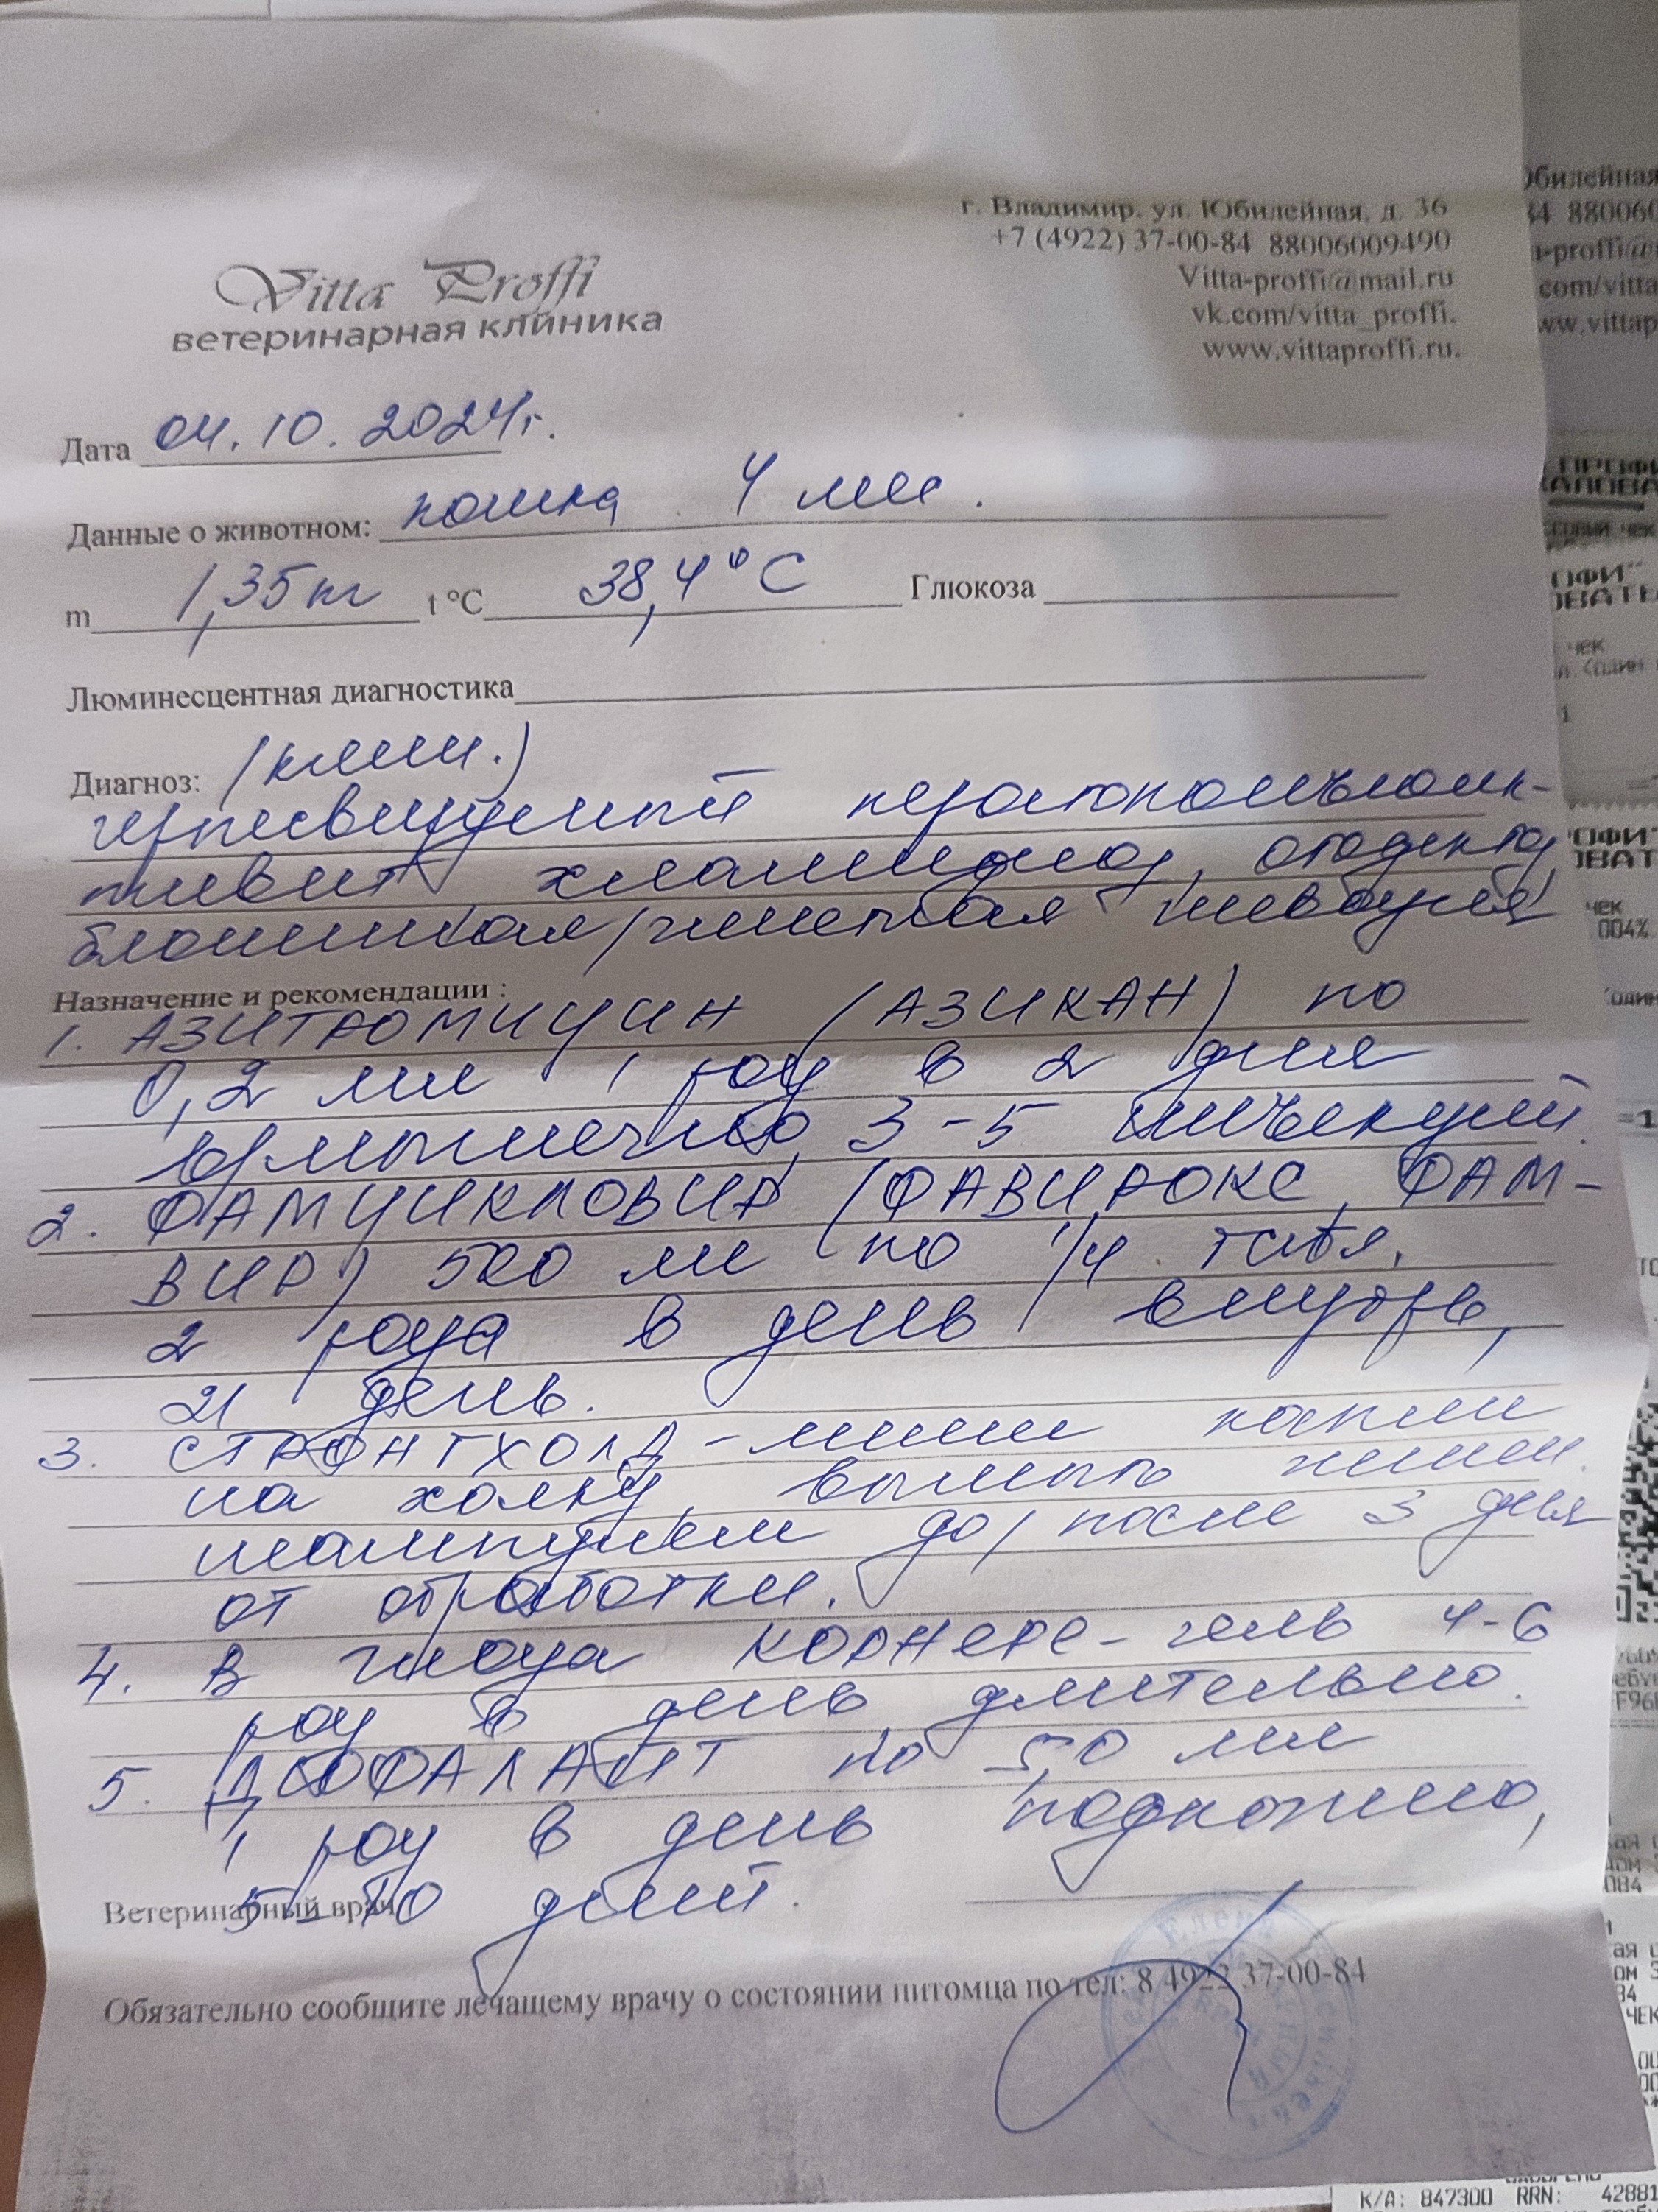 г. Владимир, ул. Юбилейная, д. 36
+7 (4922) 37-00-84 88006009490
Vitta-proffi@mail.ru
vk.com/vitta_proffi.
www.vittaproffi.ru.
Vitta Proffi
ветеринарная клиника
Дата 04.10.2024г.
Данные о животном: кошка 4 мес.
m 1,35 кг t °C 38,4°C Глюкоза
Люминесцентная диагностика
Диагноз: (клин.)
герпесвирусный кератоконъюнк-
тивит, хламидиоз, отодектоз,
блошиная/глистная инвазия
Назначение и рекомендации :
1. АЗИТРОМИЦИН (АЗИКАН) по
0,2 мл 1 раз в 2 дня
в/мышечно, 3-5 инъекций.
2. ФАМЦИКЛОВИР (ФАВИРОКС, ФАМ-
ВИР) 500 мг по 1/4 табл.
2 раза в день внутрь,
21 день.
3. СТРОНГХОЛД -
на холку,
шампунем до/после 3 дня
от обработки.
4. В глаза КОРНЕРЕ-гель 4-6
раз в день, длительно.
5. ДЮФАЛАЙТ по 5,0 мл
1 раз в день подкожно,
5-10 дней.
Ветеринарный врач
Обязательно сообщите лечащему врачу о состоянии питомца по тел: 8 4922 37-00-84
K/A: 847300 RRN: 42881